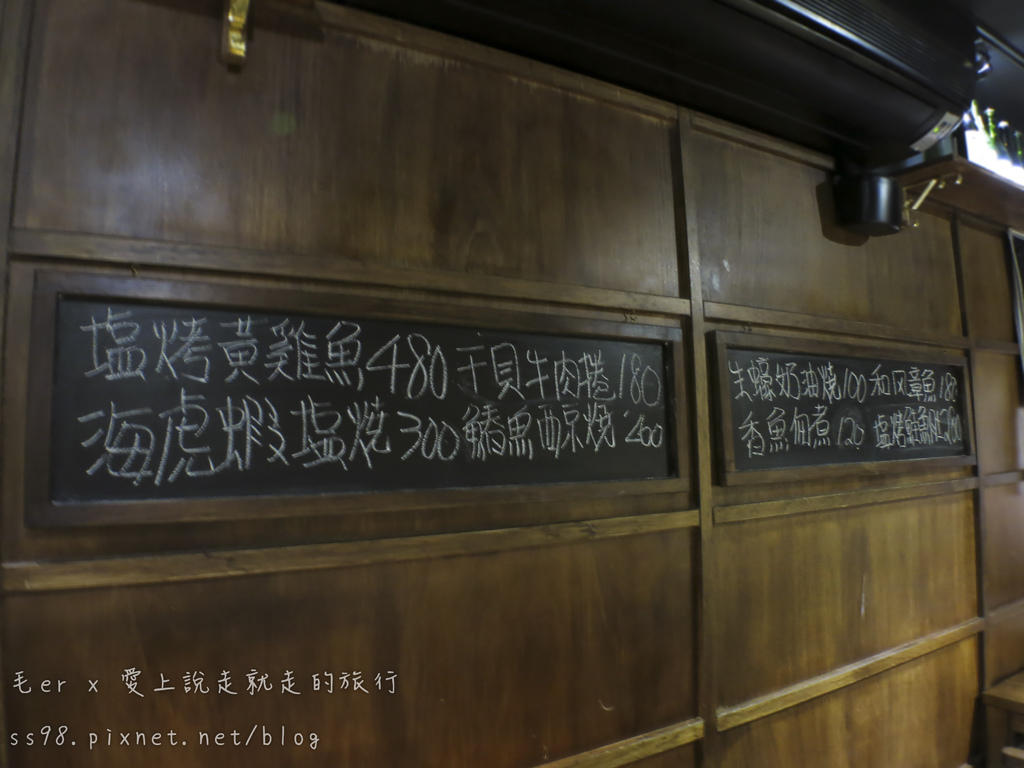 塩烤黃雞魚480 干貝牛肉捲180
海虎蝦塩燒300 鰆魚西京燒260
生蠔奶油燒100 和风章魚180
香魚佃煮120 塩烤鮭魚
毛er x 愛上說走就走的旅行
ss98.pixnet.net/blog